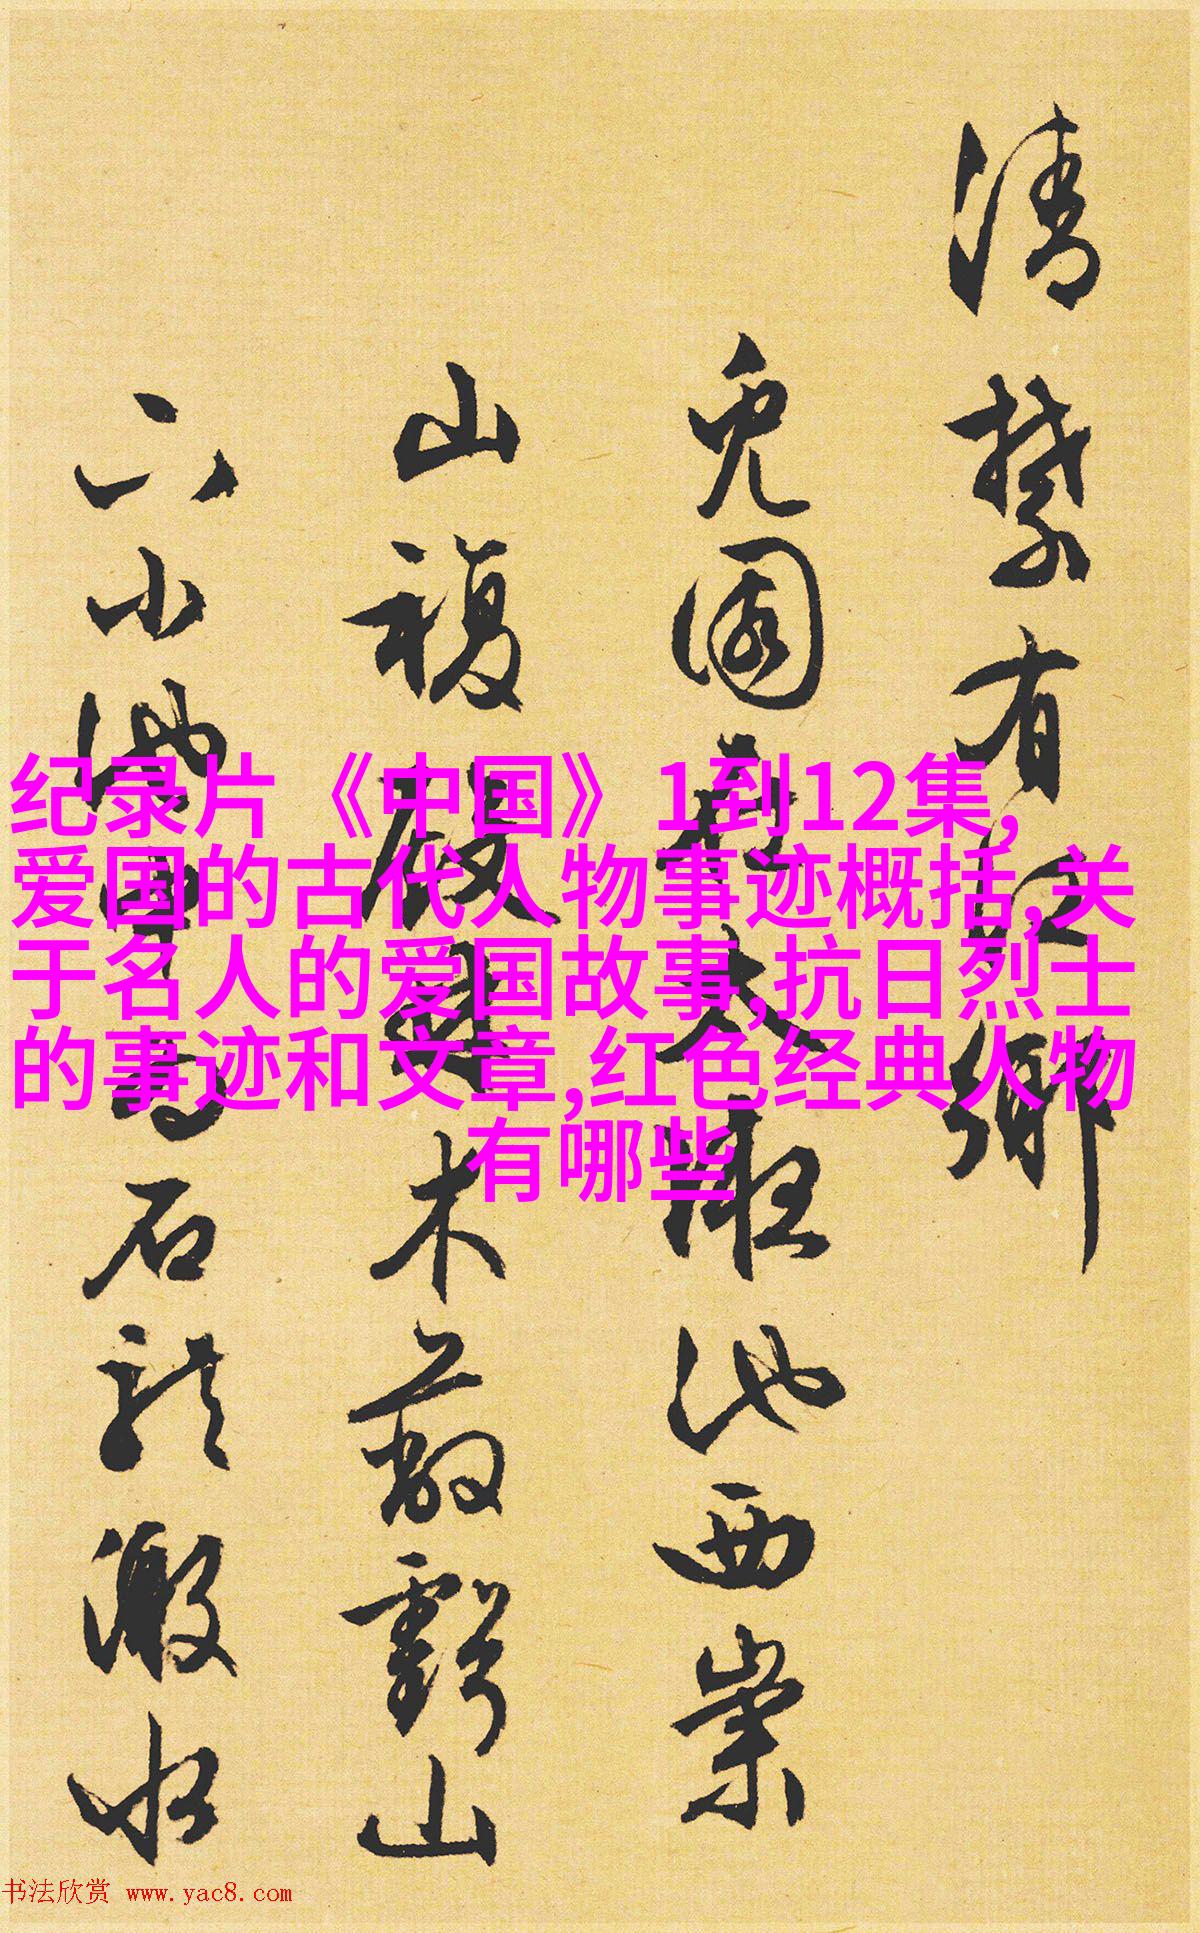 清禁有江鄉
兔園在太液池西崇
山複殿木谿山
下小池中石龍激水
纪录片《中国》1到12集,
爱国的古代人物事迹概括,关
于名人的爱国故事,抗日烈士
的事迹和文章,红色经典人物
有哪些
书法欣赏 www.yac8.com